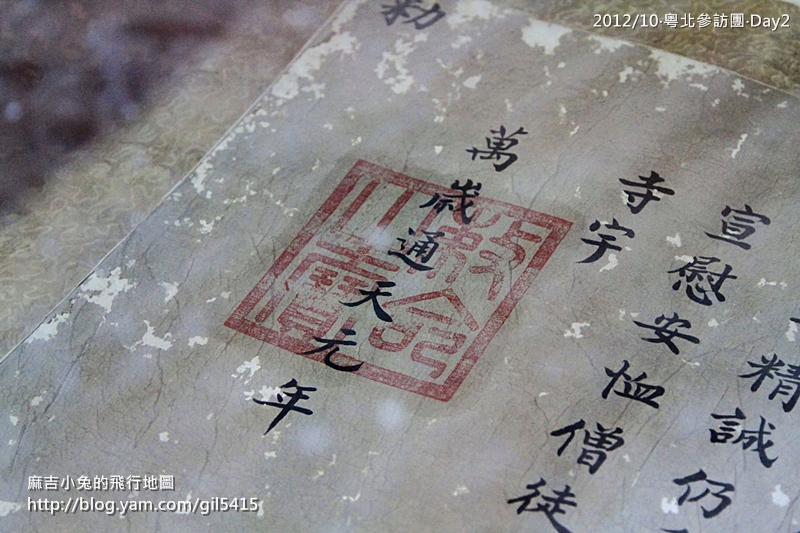 2012/10‧粵北參訪團‧Day2
精誠仍
宣慰安恤僧徒
寺宇
萬歲通天元年
勑
麻吉小兔的飛行地圖
http://blog.yam.com/gil5415